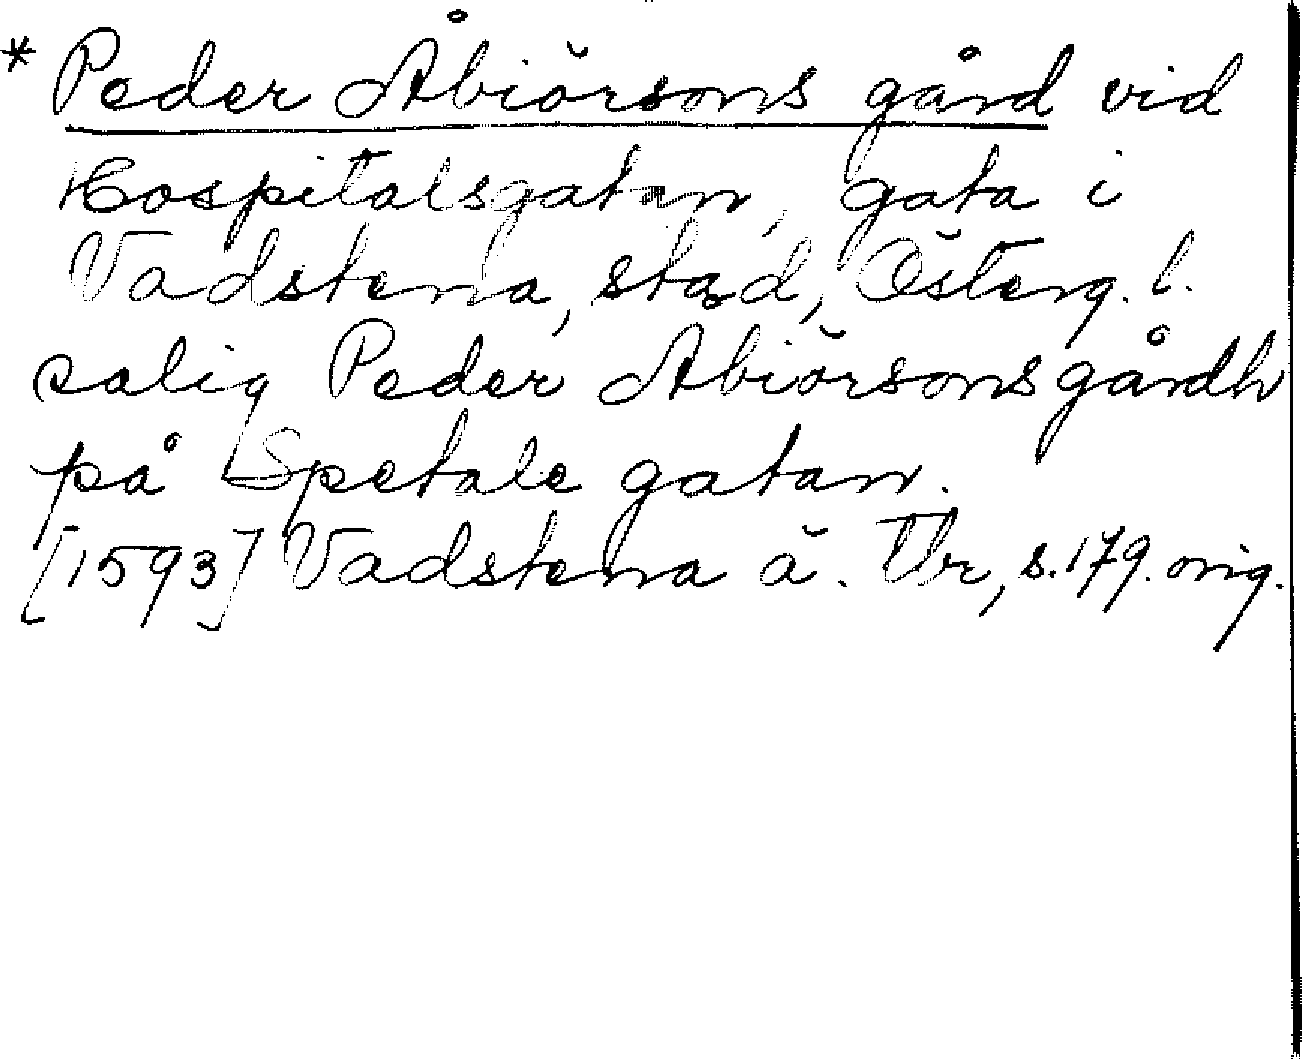 * Peder Åbiörsons gård vid
Hospitalsgatan, gata i
Vadstena, stad, Österg. l.
salig Peder Abiörsons gårdh
på Spetals gatan.
[1593] Vadstena ä. Tbr, s. 179. orig.